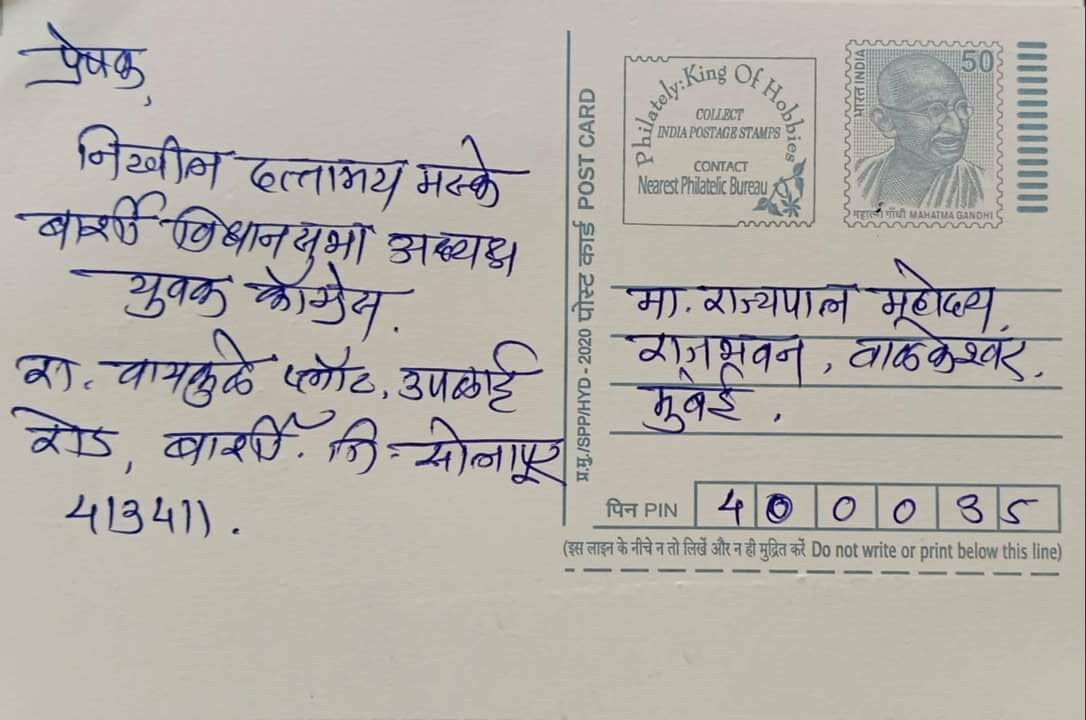 प्रेषक,
निखील दत्तात्रय मस्के
बार्शी विधानसभा अध्यक्ष
युवक काँग्रेस.
रा. वायकुळे प्लॉट, उपळाई
रोड, बार्शी. जि-सोलापूर
413411.
प्र.मु./SPP/HYD - 2020 पोस्ट कार्ड POST CARD
Philately: King Of Hobbies
COLLECT
INDIA POSTAGE STAMPS
CONTACT
Nearest Philatelic Bureau
भारत INDIA
50
महात्मा गाँधी MAHATMA GANDHI
मा. राज्यपाल महोदय,
राजभवन, वाळकेश्वर,
मुंबई.
पिन PIN 400035
(इस लाइन के नीचे न तो लिखें और न ही मुद्रित करें Do not write or print below this line)